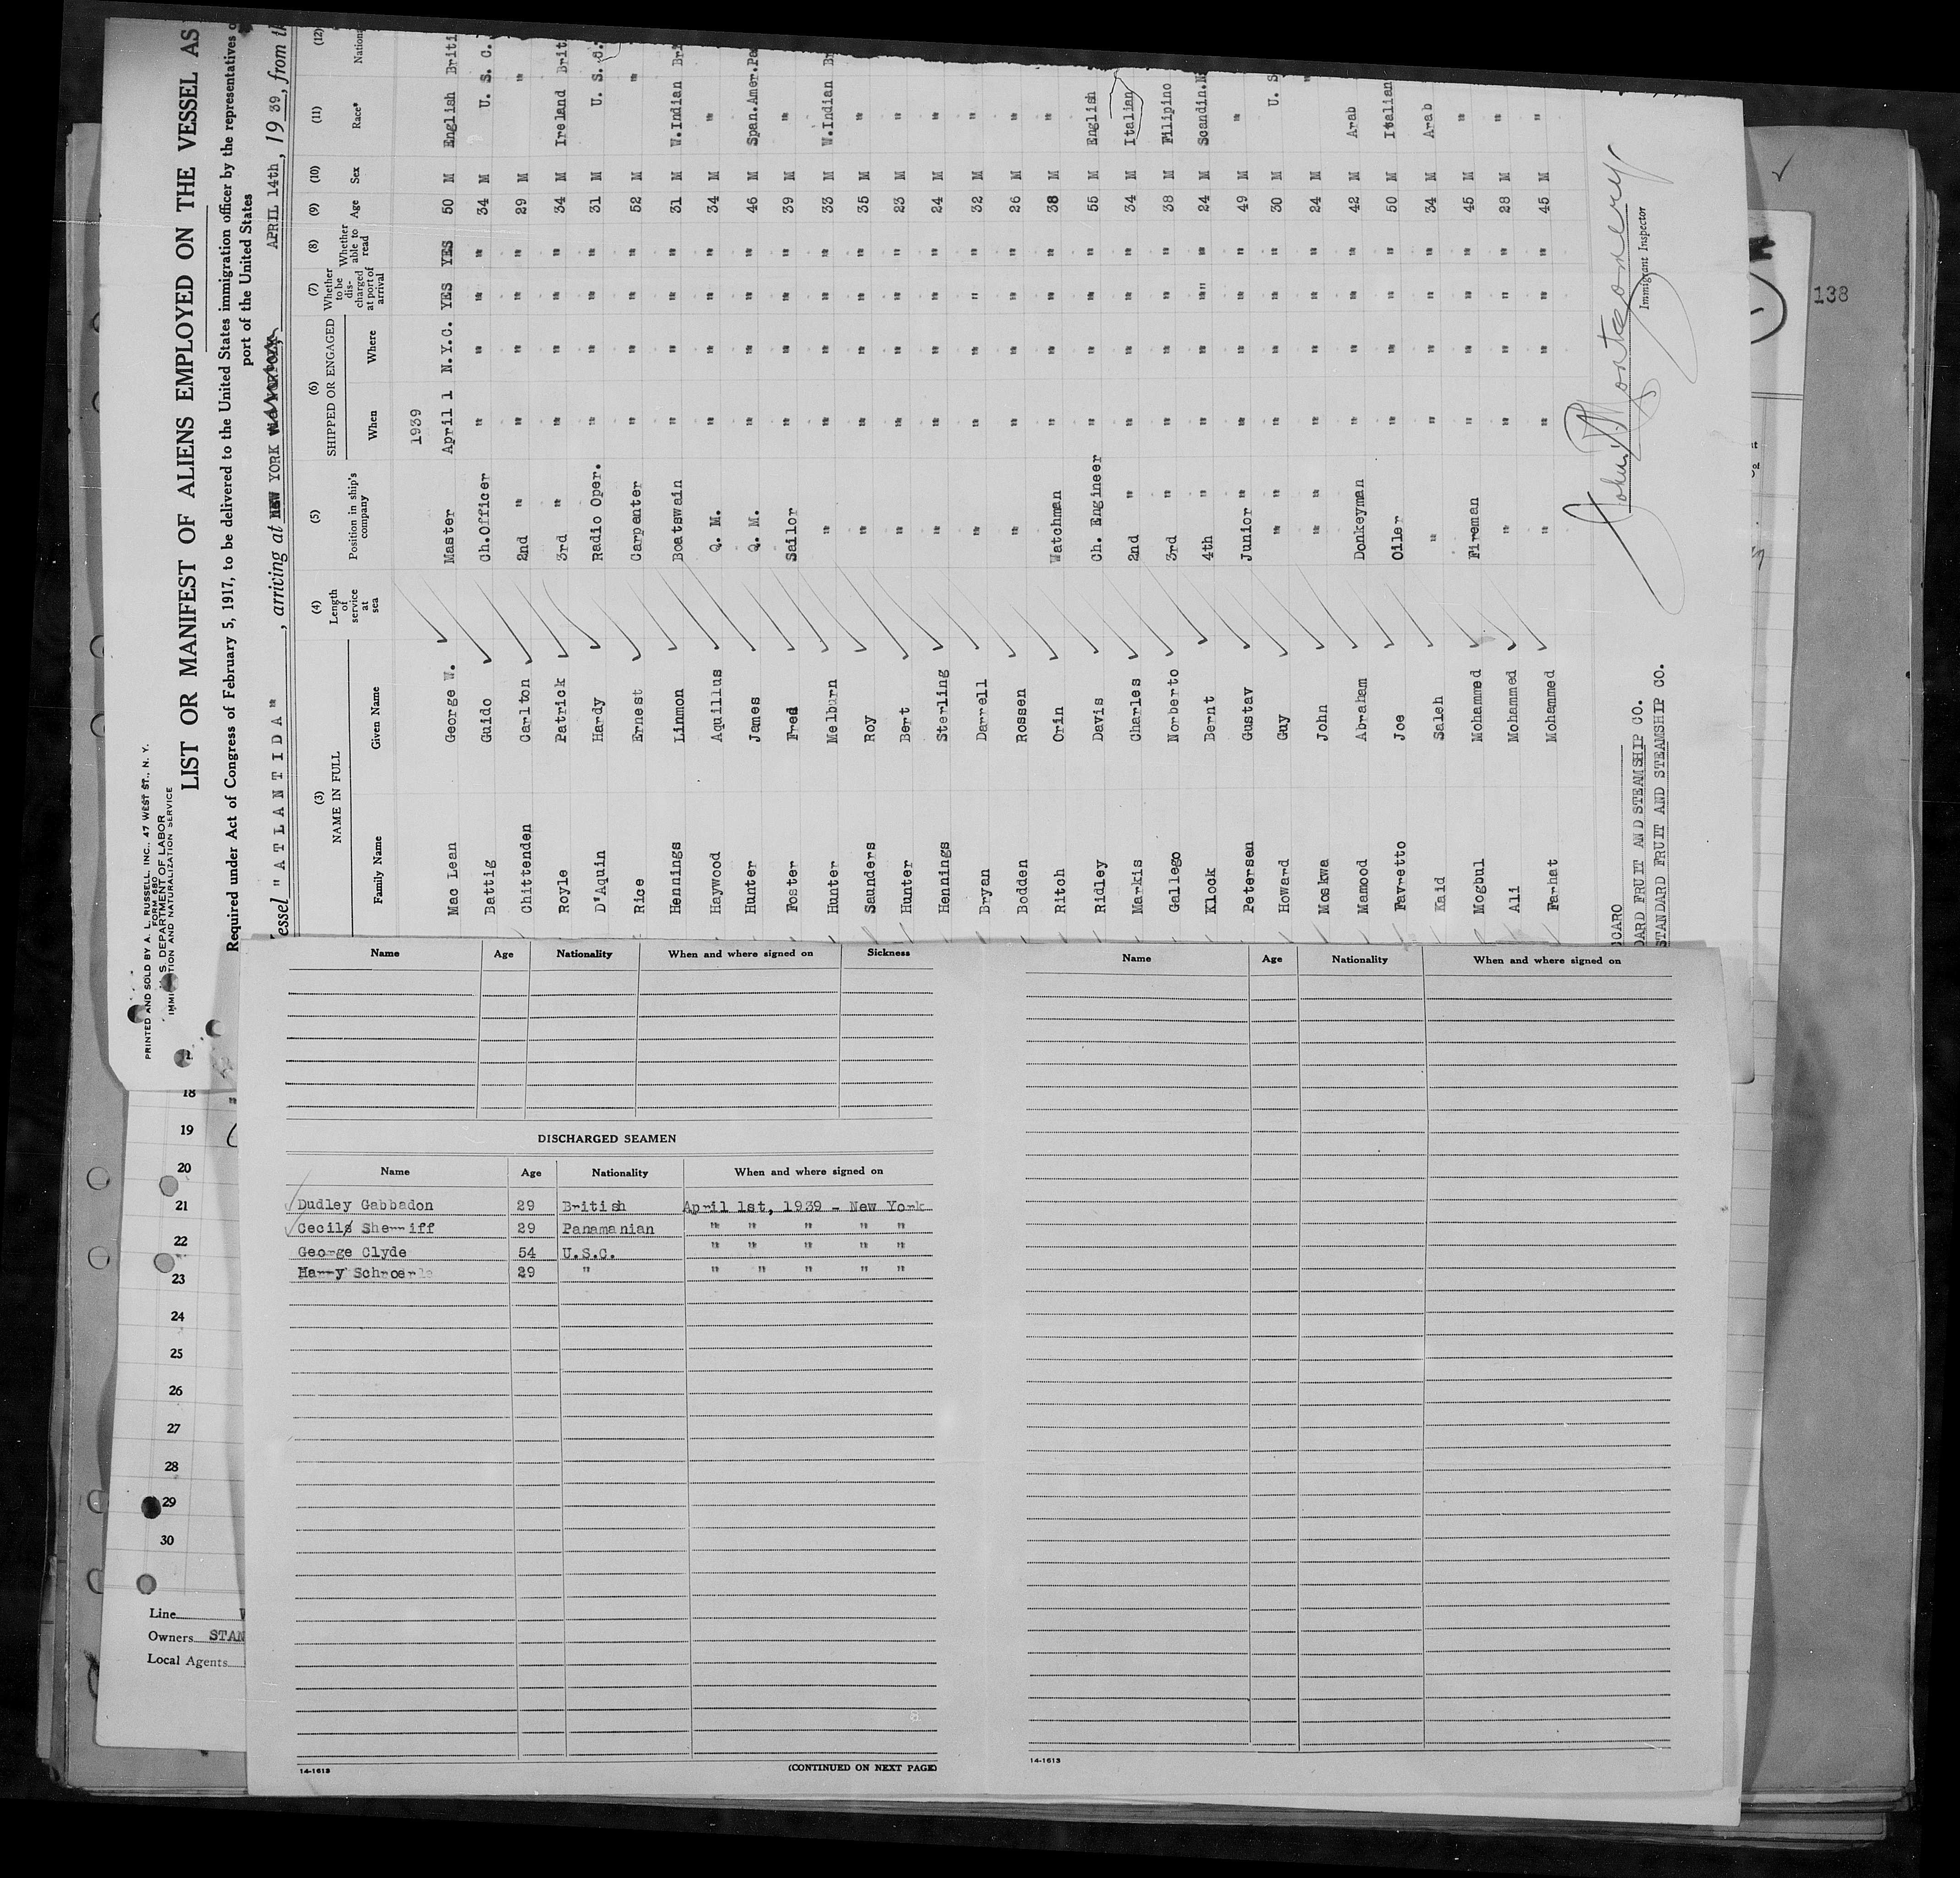 PRINTED AND SOLD BY A. L. RUSSELL, INC., 47 WEST ST., N. Y.
FORM 680
U. S. DEPARTMENT OF LABOR
IMMIGRATION AND NATURALIZATION SERVICE
LIST OR MANIFEST OF ALIENS EMPLOYED ON THE VESSEL AS
Required under Act of Congress of February 5, 1917, to be delivered to the United States immigration officer by the representatives
port of the United States
essel "ATLANTIDA", arriving at NEW YORK APRIL 14th, 1939, from
(3) (4) (5) (6) (7) (8) (9) (10) (11) (12)
NAME IN FULL Length of service at sea Position in ship's company SHIPPED OR ENGAGED Whether to be discharged at port of arrival Whether able to read Age Sex Race* Nationa
Family Name Given Name When Where
1939
Mac Lean George W. Master April 1 N.Y.C. YES YES 50 M English Briti
Battig Guido Ch.Officer " " " " 34 M U. S. C.
Chittenden Carlton 2nd " " " " " 29 M "
Royle Patrick 3rd " " " " " 34 M Ireland Brit
D'Aquin Hardy Radio Oper. " " " " 31 M U. S. C.
Rice Ernest Carpenter " " " " 52 M "
Hennings Linmon Boatswain " " " " 31 M W.Indian Bri
Haywood Aquillus Q. M. " " " " 34 M "
Hunter James Q. M. " " " " 46 M Span.Amer.Pa
Foster Fred Sailor " " " " 39 M "
Hunter Melburn " " " " " 33 M W.Indian Br
Saunders Roy " " " " " 35 M "
Hunter Bert " " " " " 23 M "
Hennings Sterling " " " " " 24 M "
Bryan Darrell " " " " " 32 M "
Bodden Rossen " " " " " 26 M "
Ritch Orin Watchman " " " " 38 M "
Ridley Davis Ch. Engineer " " " " 55 M English
Markis Charles 2nd " " " " " 34 M Italian
Gallego Norberto 3rd " " " " " 38 M Filipino
Klock Bernt 4th " " " " " 24 M Scandin.N
Petersen Gustav Junior " " " " " 49 M "
Howard Guy " " " " " " 30 M U. S
Moskwa John " " " " " " 24 M "
Mamood Abraham Donkeyman " " " " 42 M Arab
Favretto Joe Oiler " " " " 50 M Italian
Kaid Saleh " " " " " 34 M Arab
Mogbul Mohammed Fireman " " " " 45 M "
Ali Mohammed " " " " " 28 M "
Farhat Mohammed " " " " " 45 M "
CCARO
DARD FRUIT AND STEAMSHIP CO.
STANDARD FRUIT AND STEAMSHIP CO.
John Montgomery
Immigrant Inspector
138
18
19
20
21
22
23
24
25
26
27
28
29
30
Line
Owners STAN
Local Agents
Name Age Nationality When and where signed on Sickness
DISCHARGED SEAMEN
Name Age Nationality When and where signed on
Dudley Gabbadon 29 British April 1st, 1939 - New York
Cecils Sherriff 29 Panamanian " " " " "
George Clyde 54 U.S.C. " " " " "
Harry Schroerle 29 " " " " " "
14-1613
(CONTINUED ON NEXT PAGE)
Name Age Nationality When and where signed on
14-1613